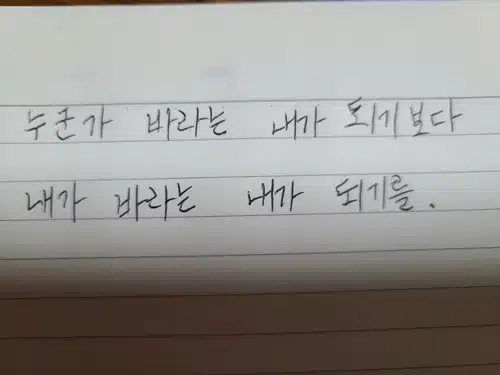 누군가 바라는 내가 되기보다
내가 바라는 내가 되기를.